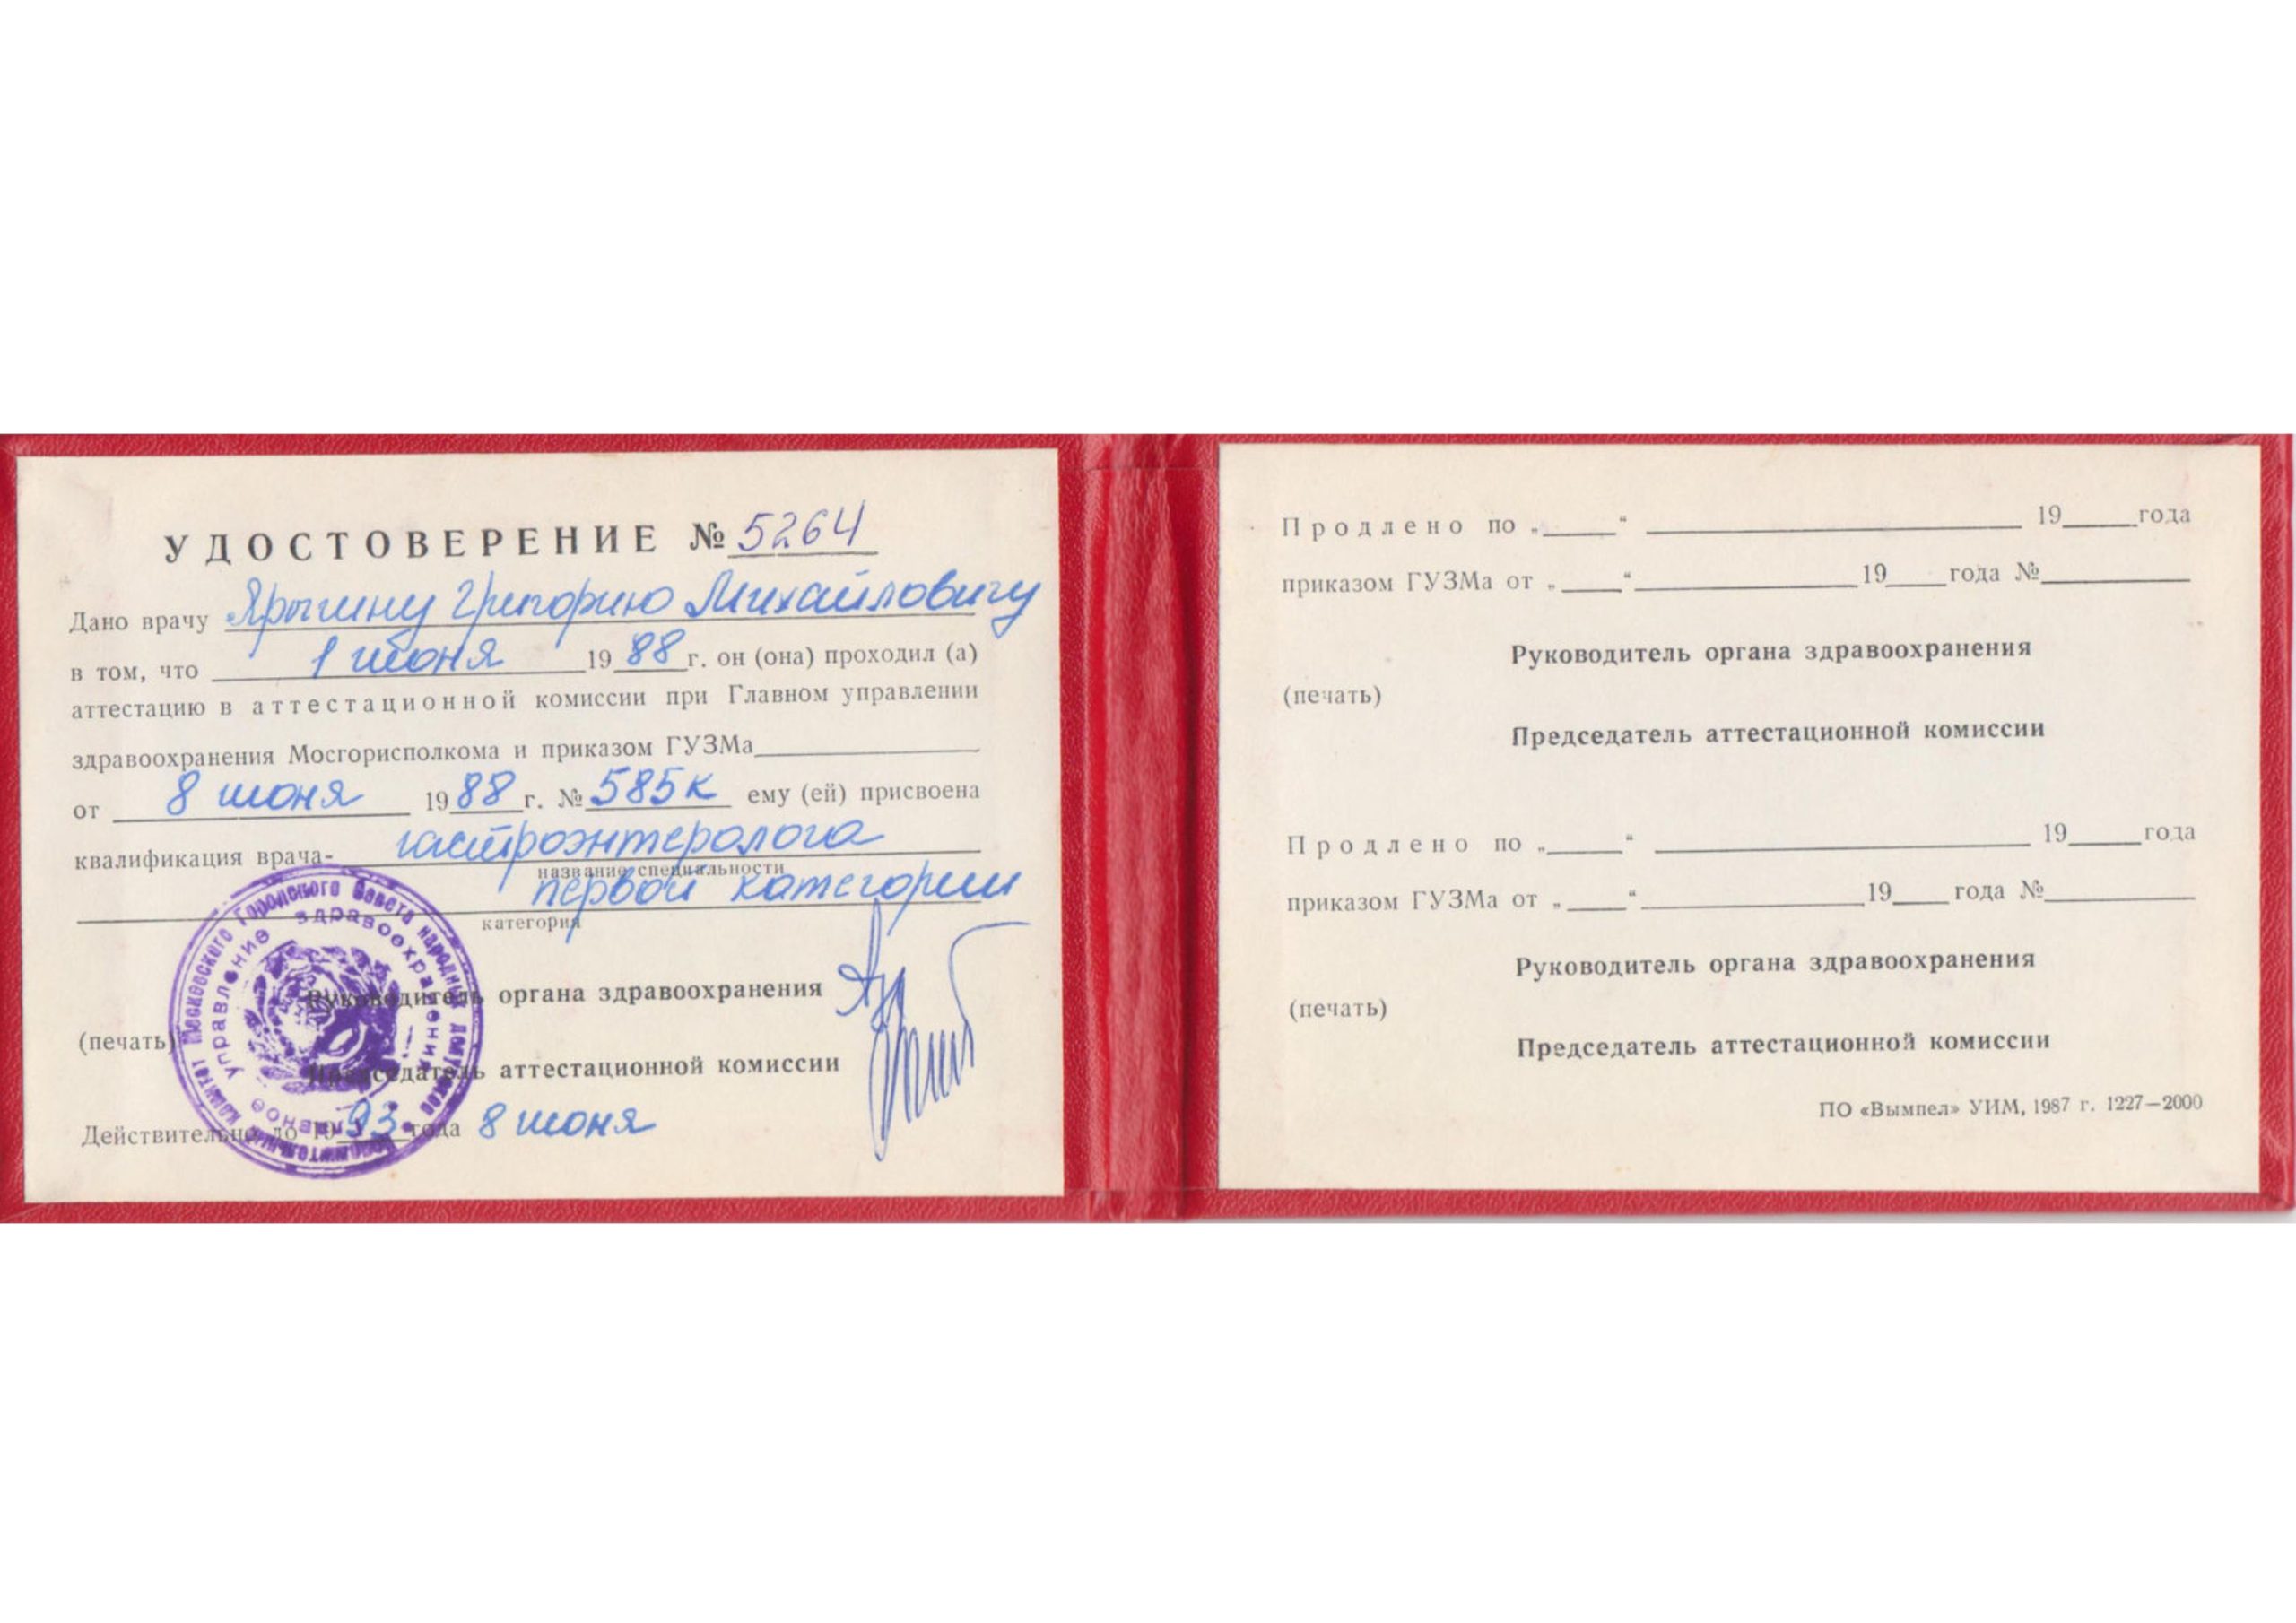 УДОСТОВЕРЕНИЕ № 5264
Дано врачу Ярыгину Григорию Михайловичу
в том, что 1 июня 1988 г. он (она) проходил (а)
аттестацию в аттестационной комиссии при Главном управлении
здравоохранения Мосгорисполкома и приказом ГУЗМа
от 8 июня 1988 г. № 585к ему (ей) присвоена
квалификация врача- гастроэнтеролога
название специальности
первой категории
категория
Руководитель органа здравоохранения
(печать)
Председатель аттестационной комиссии
Действительно до 1993 года 8 июня
Московского Городского Совета народных депутатов
Главное управление здравоохранения
Продлено по „ “ 19 года
приказом ГУЗМа от „ “ 19 года №
Руководитель органа здравоохранения
(печать)
Председатель аттестационной комиссии
Продлено по „ “ 19 года
приказом ГУЗМа от „ “ 19 года №
Руководитель органа здравоохранения
(печать)
Председатель аттестационной комиссии
ПО «Вымпел» УИМ, 1987 г. 1227—2000